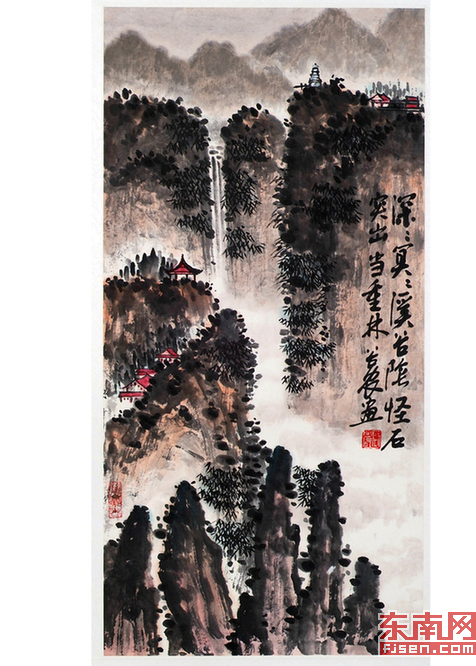 深〻冥〻溪谷隂怪石
突出当重林 画
东南网
fjsen.com